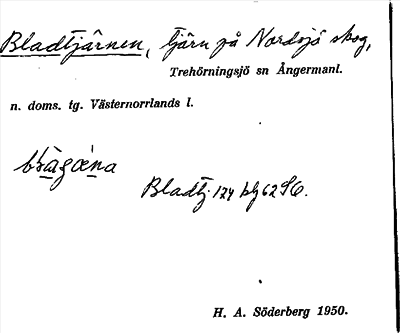 Bladtjärnen, tjärn på Nordsjö skog,
Trehörningsjö sn Ångermanl.
n. doms. tg. Västernorrlands l.
Bladtj. 124 blg 62 S6.
H. A. Söderberg 1950.